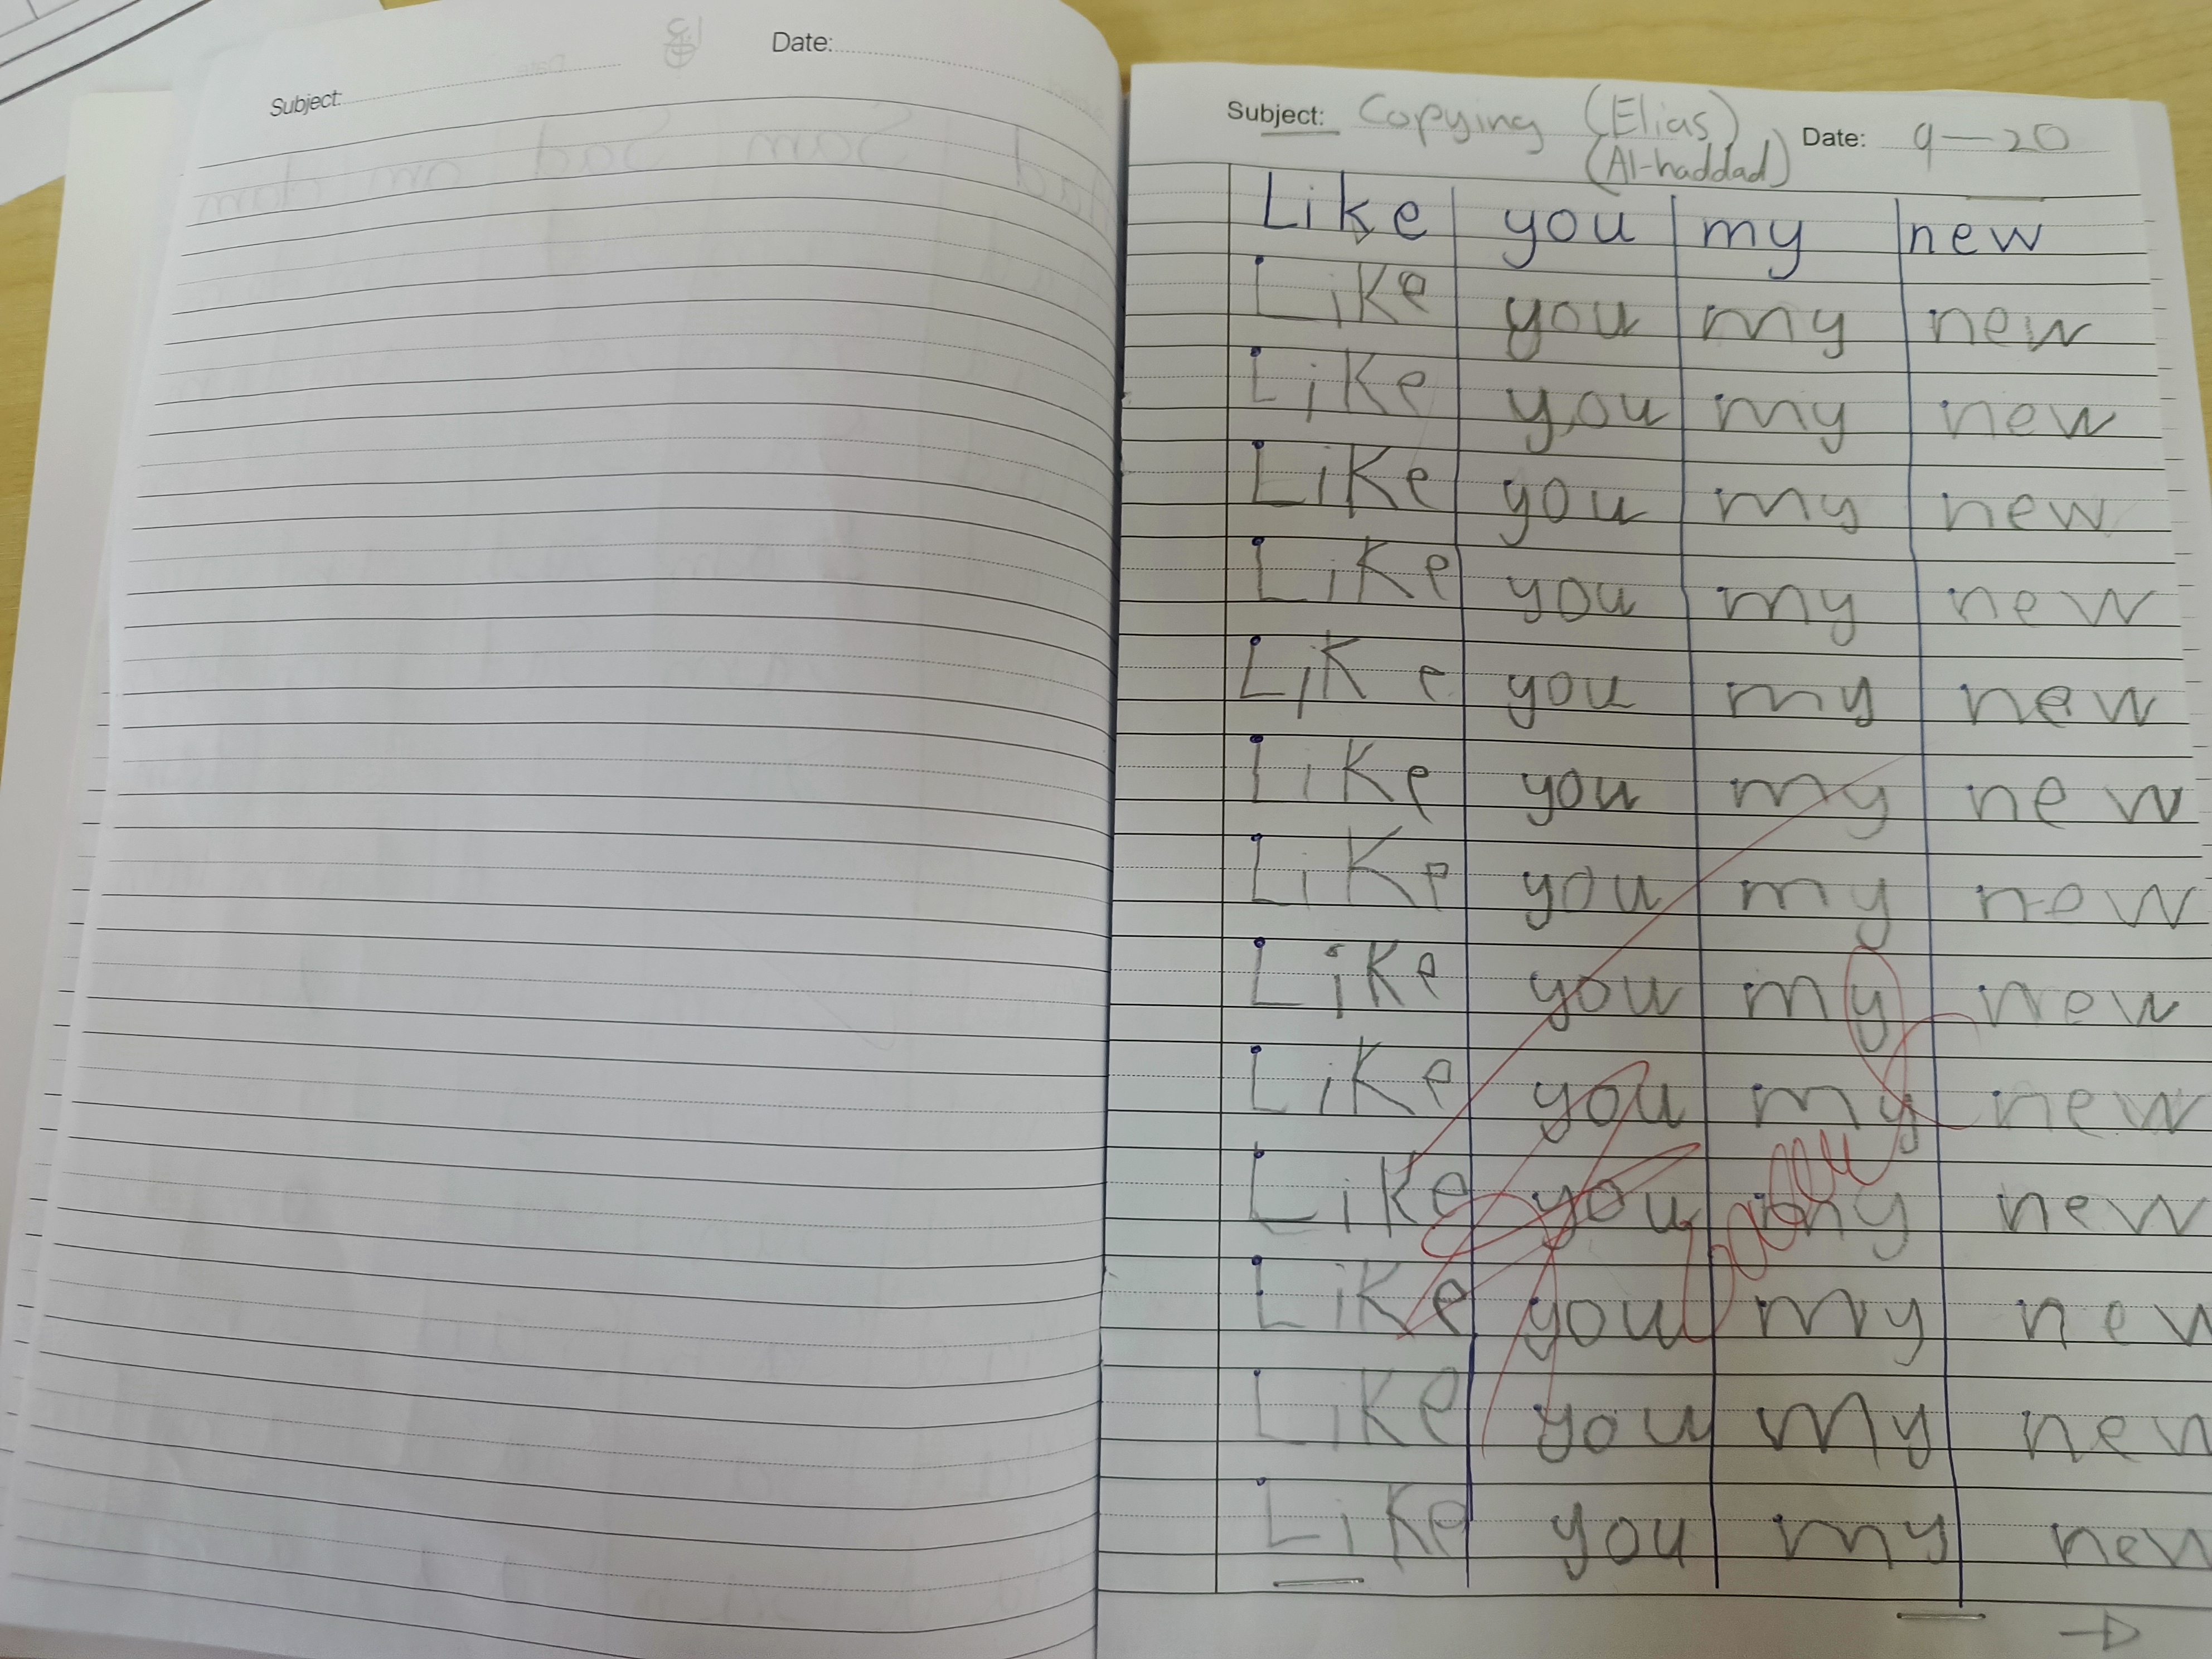 Subject: Date:
Subject: Copying (Elias) Date: 9-20
(Al-haddad)
Like you my new
Like you my new
Like you my new
Like you my new
Like you my new
Like you my new
Like you my new
Like you my new
Like you my new
Like you my new
Like you my new
Like you my new
Like you my new
Like you my new